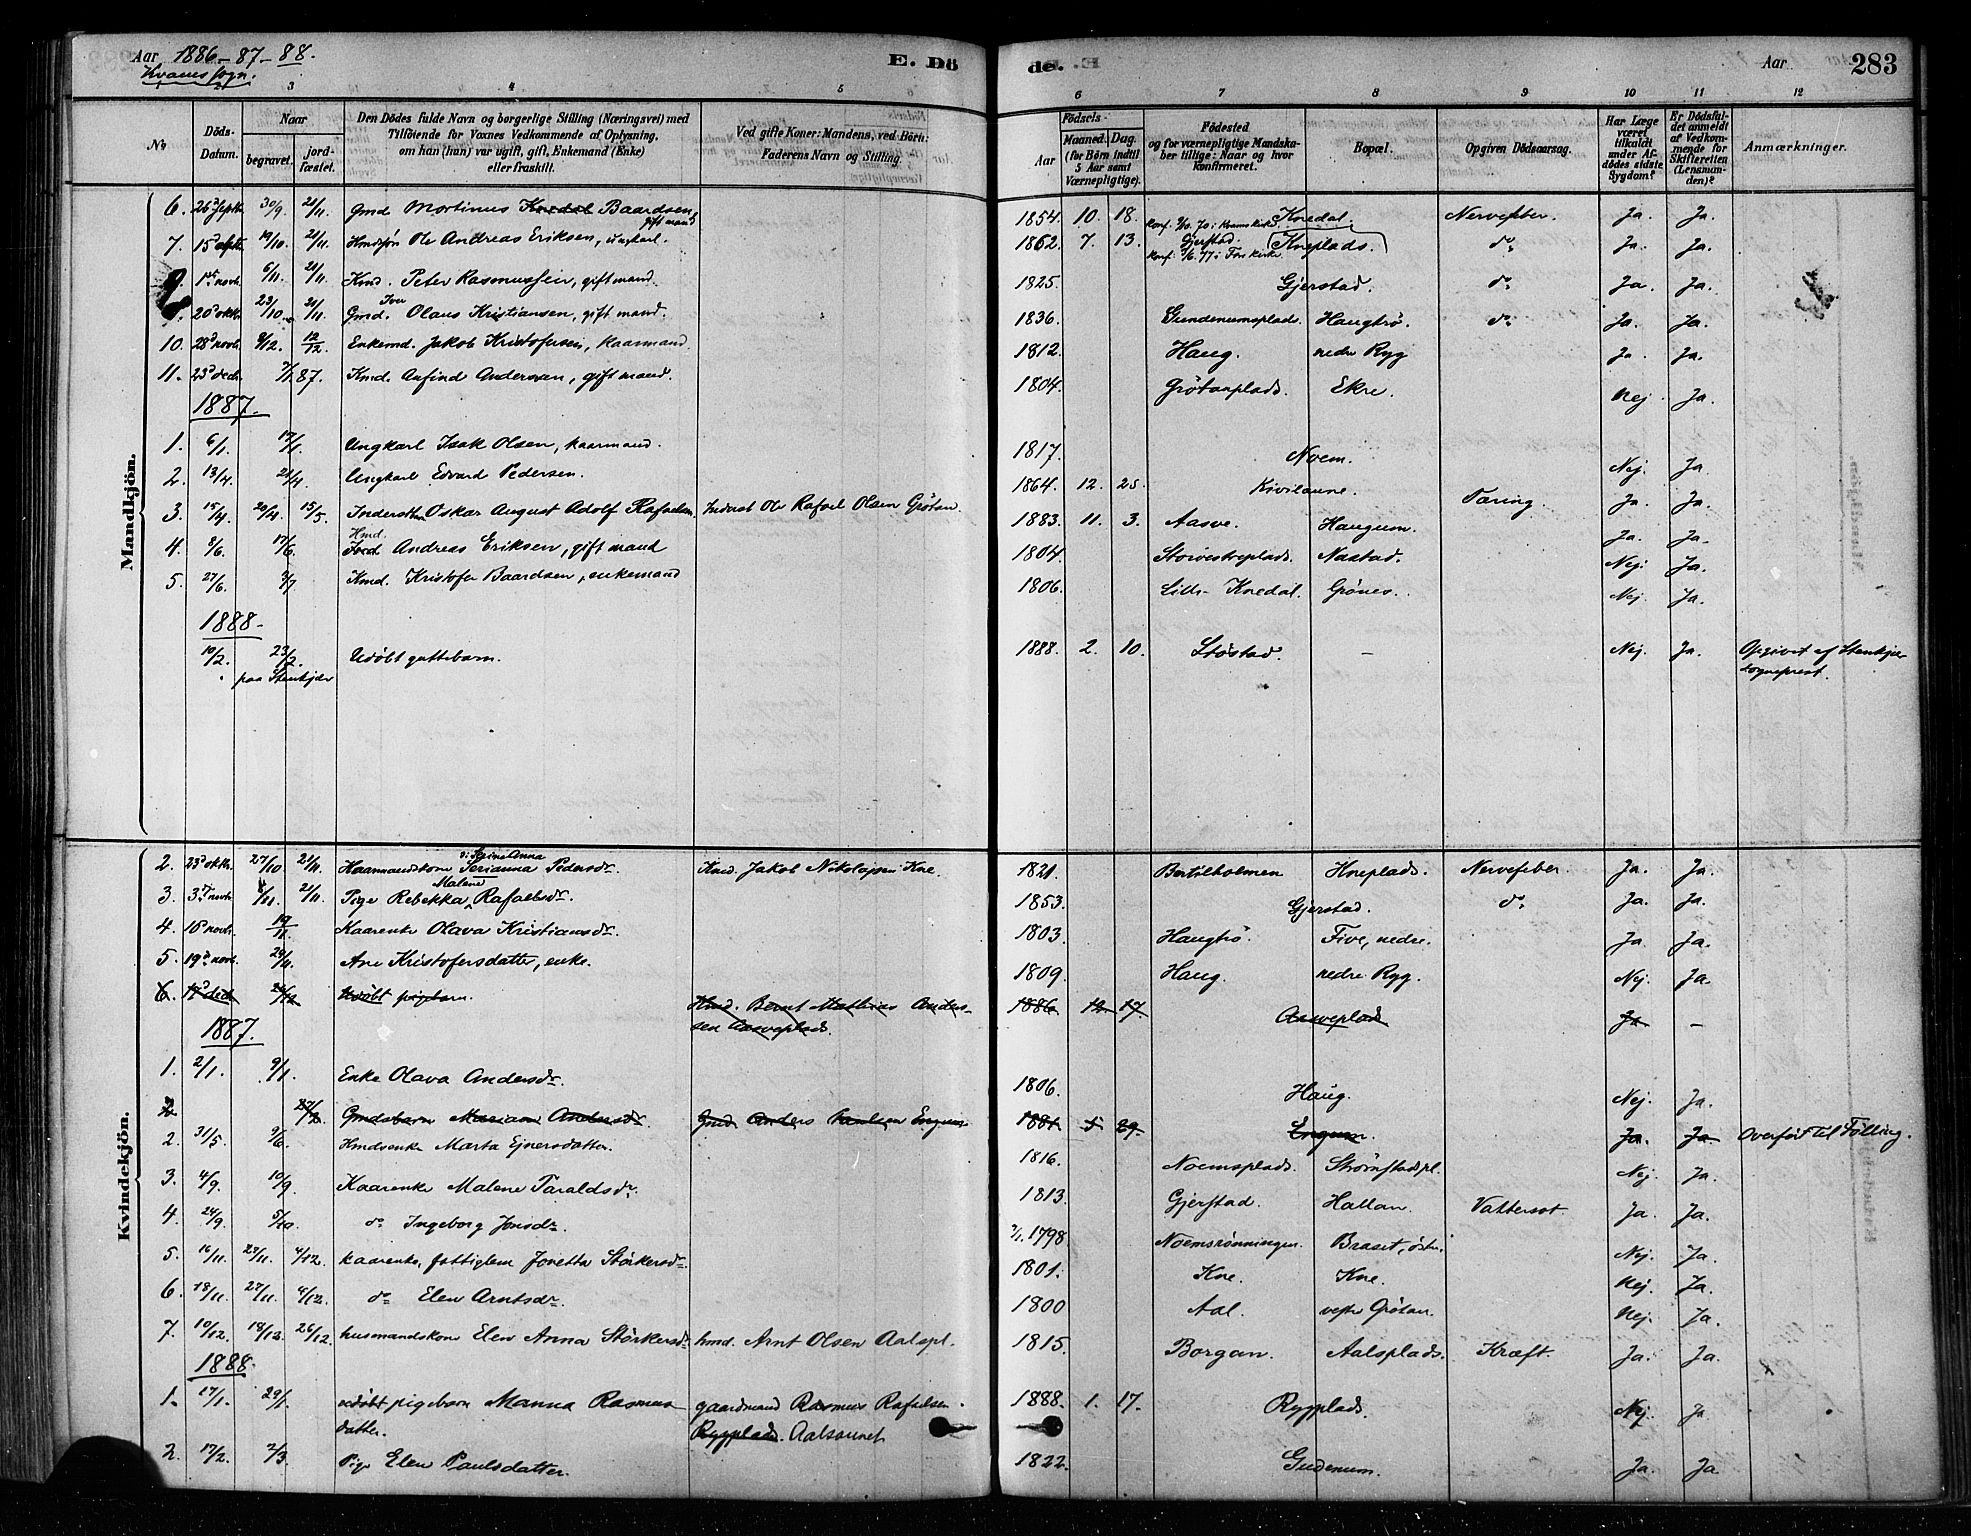 Aar 1886-87-88.
Kvams sogn.
E. Dö
de.
Aar
283
2 3 4 5 6 7 8 9 10 11 12
No
Döds-Datum.
Naar
begravet.
jord-fæstet.
Den Dödes fulde Navn og borgerlige Stilling (Næringsvei) med
Tilföiende for Voxnes Vedkommende af Oplysning,
om han (hun) var ugift, gift, Enkemand (Enke)
eller fraskilt.
Ved gifte Koner: Mandens, ved Börn:
Faderens Navn og Stilling.
Födsels-
Aar
Maaned. Dag.
(for Börn indtil
5 Aar samt
Værnepligtige).
Födested
og for værnepligtige Mandska-
ber tillige: Naar og hvor
konfirmeret.
Bopæl.
Opgiven Dödsaarsag.
Har Læge
været
tilkaldt
under Af-
dödes sidste
Sygdom?
Er Dödsfal-
det anmeldt
af Vedkom-
mende for
Skifteretten
(Lensman-
den)?
Anmærkninger.
Mandkjön.
6. 26d septb. 30/9 21/11. Gmd Mortinus Knedal Baardsen, gift mand 1854. 10. 18. Konf. 2/10. 70 i Kvams Kirke. Knedal. Nervefeber. Ja. Ja.
7. 15d 19/10. 21/11. Hmdssøn Ole Andreas Eriksen, ungkarl. 1862. 7. 13. Gjerstad. Konf. 1/6. 77 i For Kirke. Kneplads. do Ja. Ja.
1ste novb. 6/11. 21/11. Kmd. Peter Rasmussen, gift mand. 1825. Gjerstad. do Ja. Ja.
20d oktb. 23/10. 21/11. Gmd. Iver Olaus Kristiansen, gift mand. 1836. Gundenumsplads. Haugtrø. do Ja. Ja.
10. 28d novb. 9/12. 12/12 Enkemd. Jakob Kristofersen, kaarmand. 1812. Haug. nedre Ryg Ja. Ja.
11. 23d decb. 7/1.87. Kmd. Anfind Andersen, gift mand. 1804. Grøtanplads. Ekre. Nej. Ja.
1887.
1. 6/1. 17/1. Ungkarl Isak Olsen, kaarmand. 1817. Noem. Nej. Ja
2. 13/4. 21/4. Ungkarl Edvard Pedersen. 1864. 12. 25. Kivilaune. Tæring. Ja. Ja.
3. 15/4. 20/4. 15/5. Oskar August Adolf Rafaelsen Inderst Ole Rafael Olsen Grøtan 1883. 11. 3. Aasve. Haugum. Ja. Ja.
4. 8/6. 17/6. Hmd. Andreas Eriksen, gift mand 1804. Nastad. Nej. Ja.
5. 27/6. 3/7. Kmd. Kristofer Baardsen, enkemand 1806. Lille-Knedal. Grønes. Nej. Ja.
1888.
10/2. 23/2. Udøbt guttebarn. 1888. 2. 10. Støstad. – Nej. Ja. Opgivet af Stenkjer
paa Stenkjær
sogneprest.
Kvindekjön.
2. 23d oktb. 27/10 21/11. Kaarmandskone Serianna Pedersdr. Kmd. Jakob Nikolajsen Kne. 1821. Bertilholmen Kneplads. Nervefeber. Ja. Ja.
3. 3die novb. 8/11. 21/11. Pige Rebekka Malene Rafaelsdr. 1853. Gjerstad. do Ja. Ja.
4. 16 novb. 19/11. Kaarenke Olava Kristiansdr. 1803. Haugtrø. Five, nedre. Ja Ja.
5. 19d novb. 29/11. Ane Kristofersdatter, enke. 1809. Haug. nedre Ryg. Nej. Ja.
6. 17d decb. Udøbt pigebarn. Hmd. Bernt Mathias Anders-
sen Aasveplads. 1886 12 17. Aasveplads Ja –
1887.
1. 2/1. 9/1. Enke Olava Andersdr. 1806. Haug. Nej. Ja.
2 27/2 Gmdsbarn Mariann Andersdr. Gmd. Anders Engum 1881 5 29. Engum. Ja. Ja Overført til Følling.
2. 31/5. 9/6. Hmdsenke Marta Ejnersdatter. 1816. Noemsplads. Strømstadspl. Nej. Ja.
3. 4/9. 10/9. Kaarenke Malene Taraldsdr. 1813. Gjerstad. Hallan. Vattersot. Ja. Ja.
4. 24/9. 5/10. do Ingeborg Jonsdr. 2/1.1798. Noemsrønningen. Braset, østre. Nej. Ja.
5. 16/11. 27/11. 4/12. kaarenke, fattiglem Jonetta Størkersdr. 1801. Kne. Kne. Nej. Ja.
6. 18/11. 27/11. 4/12. do Elen Arntsdr. 1800 Aal. vestre Grøtan. Nej. Ja.
7. 10/12. 18/12. 26/12. husmandskone Elen Anna Størkersdr. hmd. Arnt Olsen Aalspl. 1815. Borgan. Aalsplads. Kræft. Ja. Ja.
1888.
1. 17/1. 29/1. udøbt pigebarn Manna Rasmus-
datter. gaardmand Rasmus Rafaelsen.
Rygplads. Aalsaunet 1888. 1. 17. Rygplads. Nej. Ja
2. 17/2. 2/3. Pige Elen Paulsdatter. 1822. Gudenum. Ja. Ja